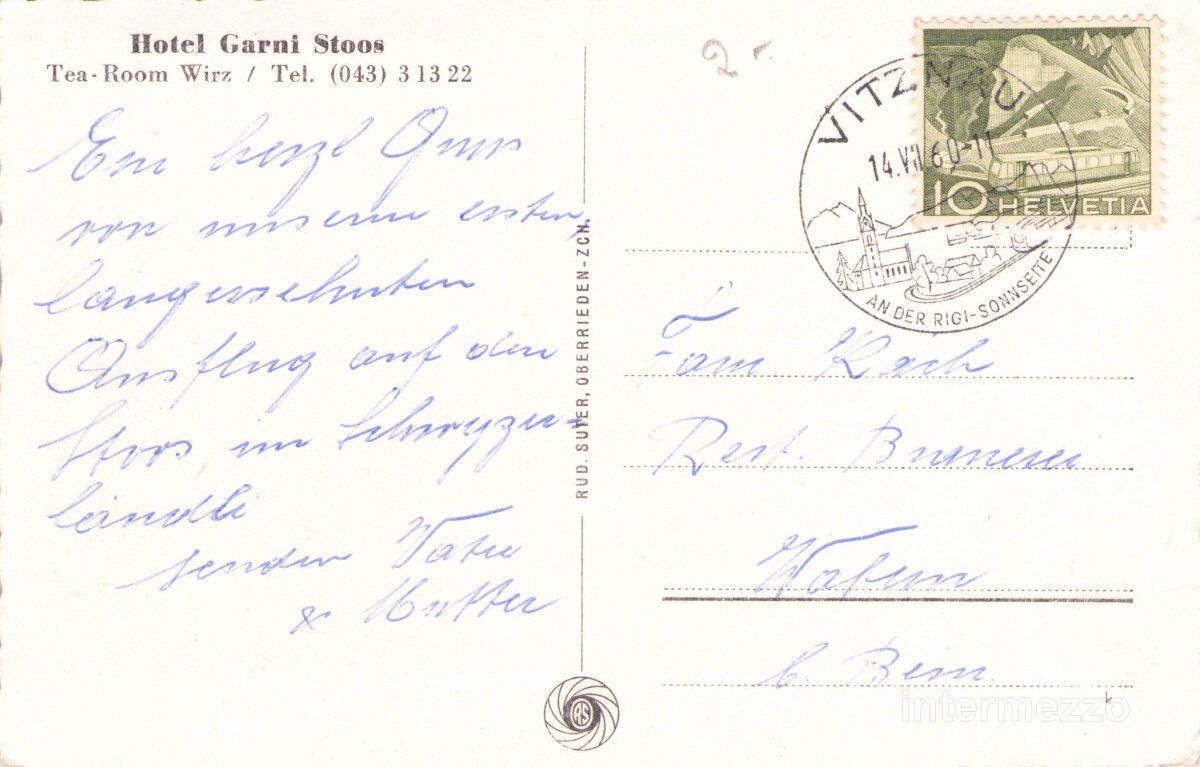 Hotel Garni Stoos
Tea-Room Wirz / Tel. (043) 3 13 22
Ein herzl. Gruss
von unserm ersten,
langersehnten
Ausflug auf den
Stoos, im Schwyzer=
ländli
senden Vater
& Mutter
RUD. SUTER, OBERRIEDEN-ZCH.
RS
2.-
VITZNAU
14.VII.60-11
AN DER RIGI-SONNSEITE
10 HELVETIA
Fam.
Rest.
Wabern
b. Bern.
k
intermezzo